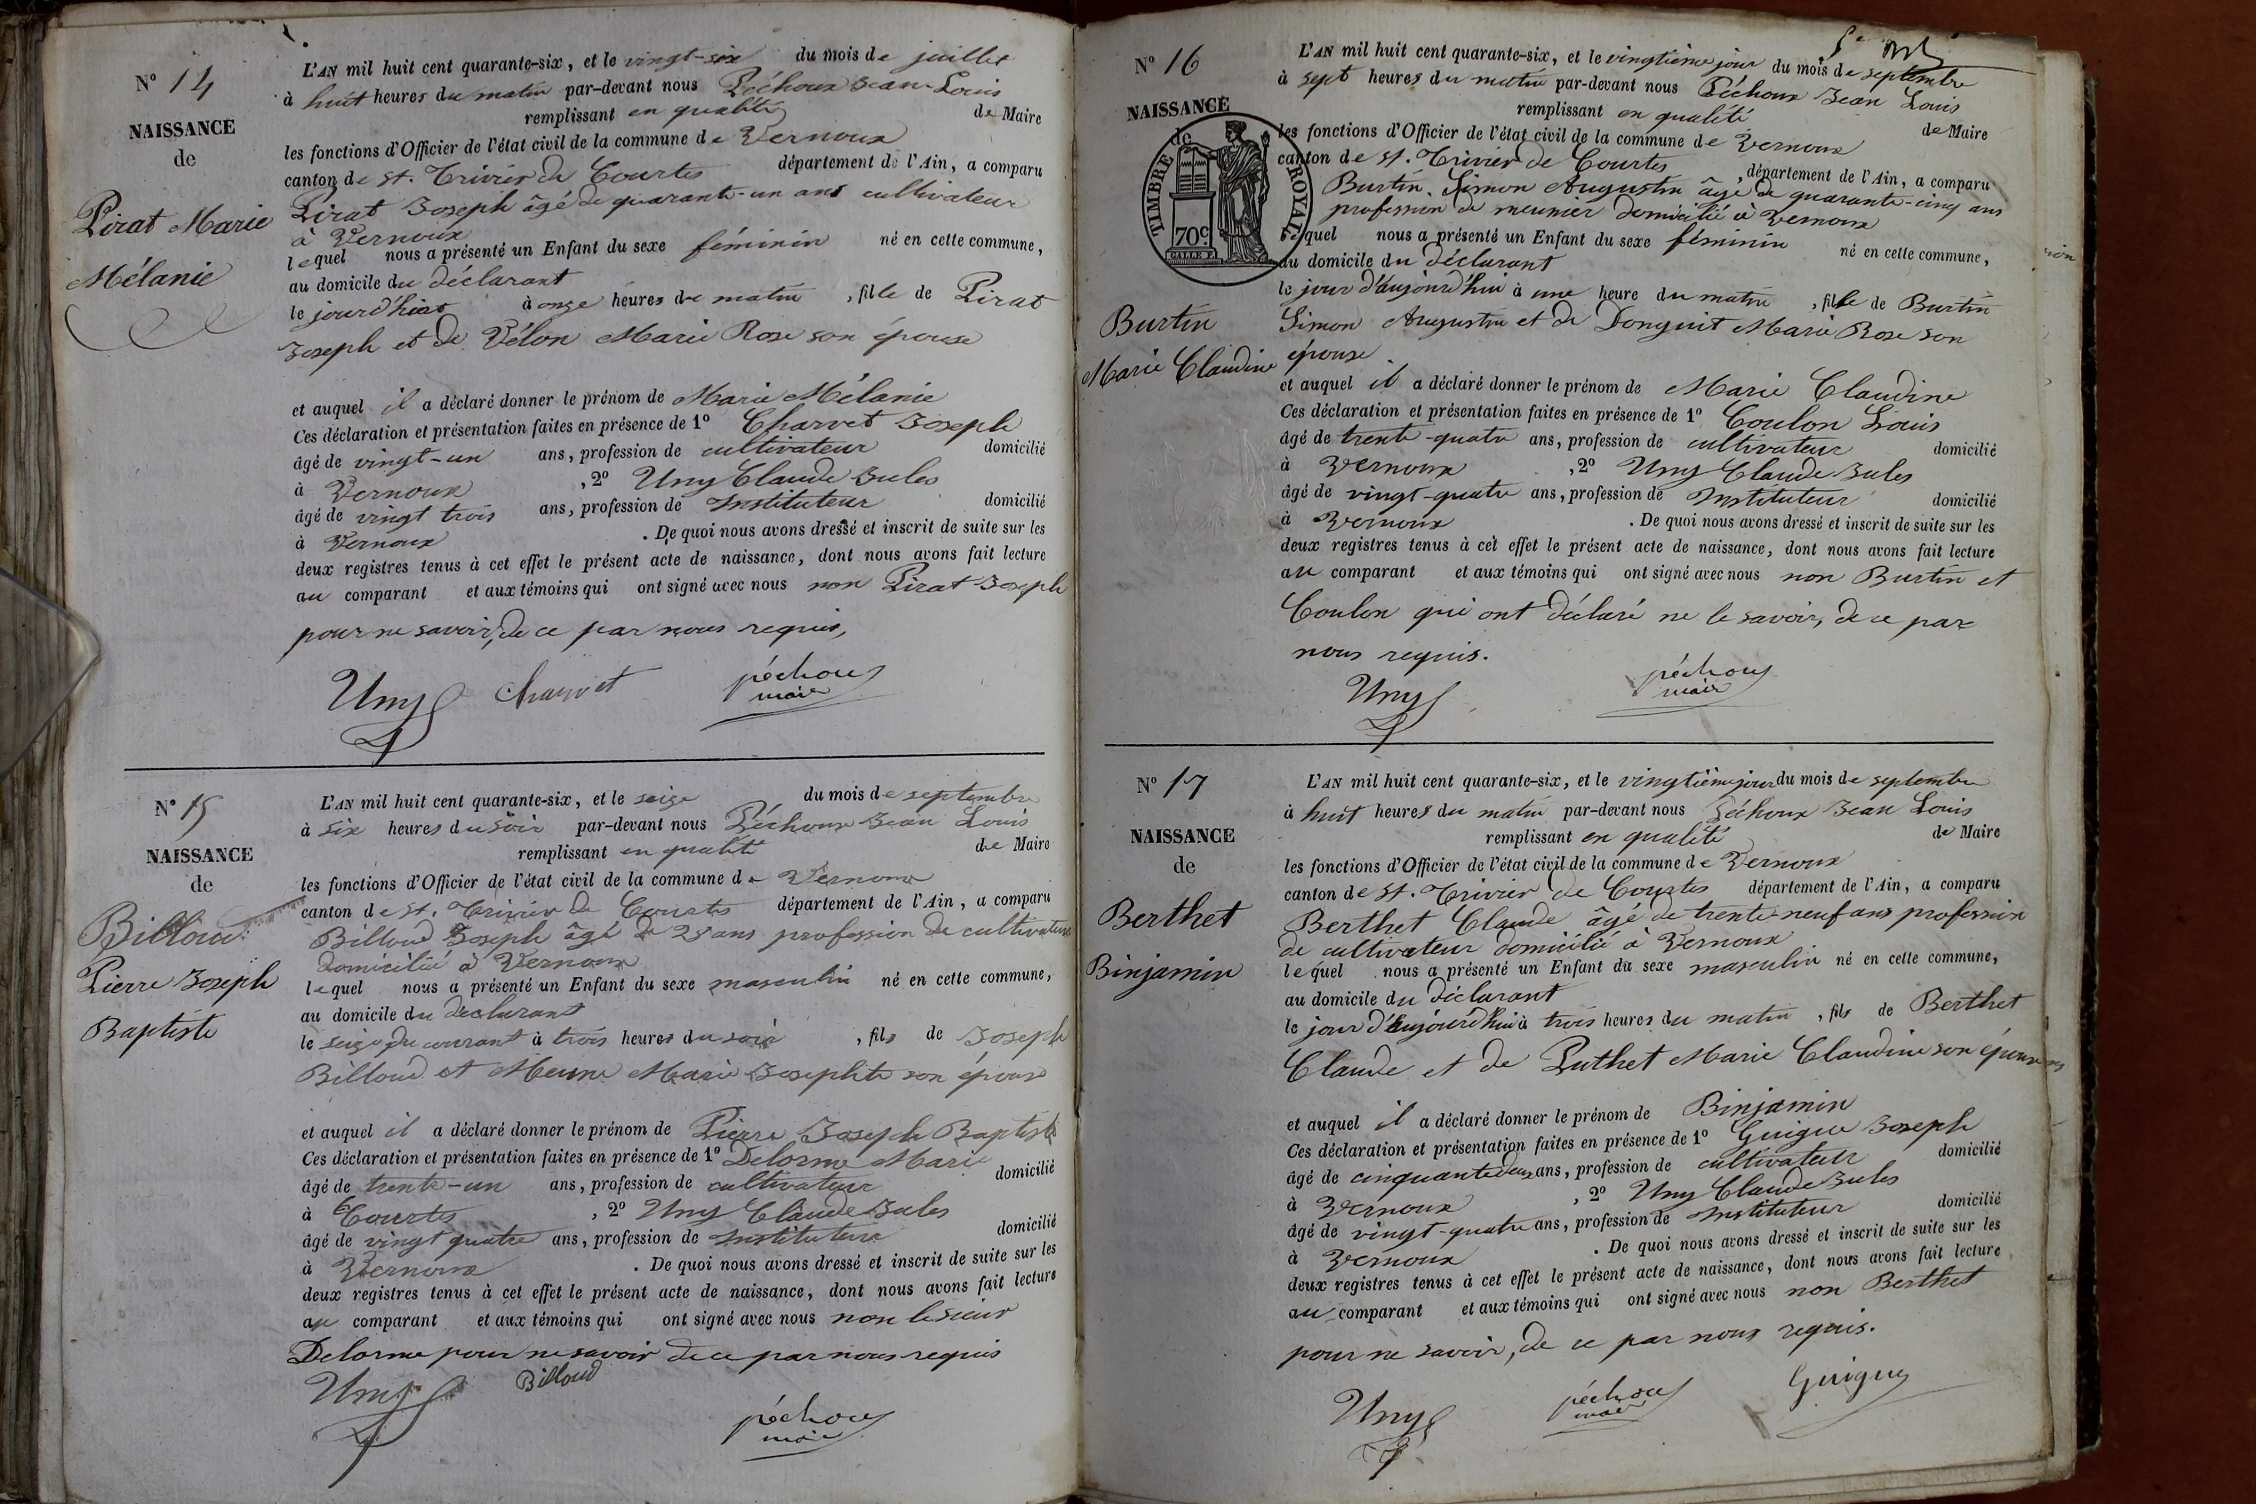 N° 14
NAISSANCE
de
Pirat Marie
Mélanie
L'AN mil huit cent quarante-six, et le vingt-six du mois de juillet
à huit heures du matin par-devant nous Péchoux Jean Louis
remplissant en qualité de Maire
les fonctions d'Officier de l'état civil de la commune de Vernoux
canton de St. Trivier de Courtes département de l'Ain, a comparu
Pirat Joseph âgé de quarante-un ans cultivateur
à Vernoux
lequel nous a présenté un Enfant du sexe féminin né en cette commune,
au domicile du déclarant
le jour d'hier à onze heures du matin, fille de Pirat
Joseph et de Vélon Marie Rose son épouse
et auquel il a déclaré donner le prénom de Marie Mélanie
Ces déclaration et présentation faites en présence de 1° Charvet Joseph
âgé de vingt-un ans, profession de cultivateur domicilié
à Vernoux, 2° Uny Claude Jules
âgé de vingt trois ans, profession de Instituteur domicilié
à Vernoux. De quoi nous avons dressé et inscrit de suite sur les
deux registres tenus à cet effet le présent acte de naissance, dont nous avons fait lecture
au comparant et aux témoins qui ont signé avec nous non Pirat Joseph
pour ne savoir, de ce par nous requis,
Uny Charvet péchoux
maire
N° 15
NAISSANCE
de
Billoud
Pierre Joseph
Baptiste
L'AN mil huit cent quarante-six, et le seize du mois de septembre
à six heures du soir par-devant nous Péchoux Jean Louis
remplissant en qualité de Maire
les fonctions d'Officier de l'état civil de la commune de Vernoux
canton de St. Trivier de Courtes département de l'Ain, a comparu
Billoud Joseph âgé de 25 ans profession de cultivateur
domicilié à Vernoux
lequel nous a présenté un Enfant du sexe masculin né en cette commune,
au domicile du declarant
le seize du courant à trois heures du soir, fils de Joseph
Billoud et Marie Josephte son épouse
et auquel il a déclaré donner le prénom de Pierre Joseph Baptiste
Ces déclaration et présentation faites en présence de 1° Delorme Marie
âgé de trente-un ans, profession de cultivateur domicilié
à Courtes, 2° Uny Claude Jules
âgé de vingt quatre ans, profession de Instituteur domicilié
à Vernoux. De quoi nous avons dressé et inscrit de suite sur les
deux registres tenus à cet effet le présent acte de naissance, dont nous avons fait lecture
au comparant et aux témoins qui ont signé avec nous non le sieur
Delorme pour ne savoir de ce par nous requis
Uny Billoud
péchoux
maire
N° 16
NAISSANCE
de
TIMBRE ROYAL
70c
Burtin
Marie Claudine
L'AN mil huit cent quarante-six, et le vingtième jour du mois de septembre
à sept heures du matin par-devant nous Péchoux Jean Louis
remplissant en qualité de Maire
les fonctions d'Officier de l'état civil de la commune de Vernoux
canton de St. Trivier de Courtes, département de l'Ain, a comparu
Burtin Simon Augustin âgé de quarante-cinq ans
profession de meunier domicilié à Vernoux
lequel nous a présenté un Enfant du sexe féminin né en cette commune,
au domicile du déclarant
le jour d'aujourd'hui à une heure du matin, fille de Burtin
Simon Augustin et de Donguit Marie Rose son
épouse.
et auquel il a déclaré donner le prénom de Marie Claudine
Ces déclaration et présentation faites en présence de 1° Coulon Louis
âgé de trente-quatre ans, profession de cultivateur domicilié
à Vernoux, 2° Uny Claude Jules
âgé de vingt-quatre ans, profession de Instituteur domicilié
à Vernoux. De quoi nous avons dressé et inscrit de suite sur les
deux registres tenus à cet effet le présent acte de naissance, dont nous avons fait lecture
au comparant et aux témoins qui ont signé avec nous non Burtin et
Coulon qui ont déclaré ne le savoir, de ce par
nous requis.
Uny péchoux
maire
N° 17
NAISSANCE
de
Berthet
Binjamin
L'AN mil huit cent quarante-six, et le vingtième jour du mois de septembre
à huit heures du matin par-devant nous Péchoux Jean Louis
remplissant en qualité de Maire
les fonctions d'Officier de l'état civil de la commune de Vernoux
canton de St. Trivier de Courtes département de l'Ain, a comparu
Berthet Claude âgé de trente-neuf ans profession
de cultivateur domicilié à Vernoux
lequel nous a présenté un Enfant du sexe masculin né en cette commune,
au domicile du déclarant
le jour d'aujourd'hui à trois heures du matin, fils de Berthet
Claude et de Puthet Marie Claudine son épouse
et auquel il a déclaré donner le prénom de Binjamin
Ces déclaration et présentation faites en présence de 1° Guigue Joseph
âgé de cinquante deux ans, profession de cultivateur domicilié
à Vernoux, 2° Uny Claude Jules
âgé de vingt-quatre ans, profession de Instituteur domicilié
à Vernoux. De quoi nous avons dressé et inscrit de suite sur les
deux registres tenus à cet effet le présent acte de naissance, dont nous avons fait lecture
au comparant et aux témoins qui ont signé avec nous non Berthet
pour ne savoir, de ce par nous requis.
Uny péchoux Guigue
maire